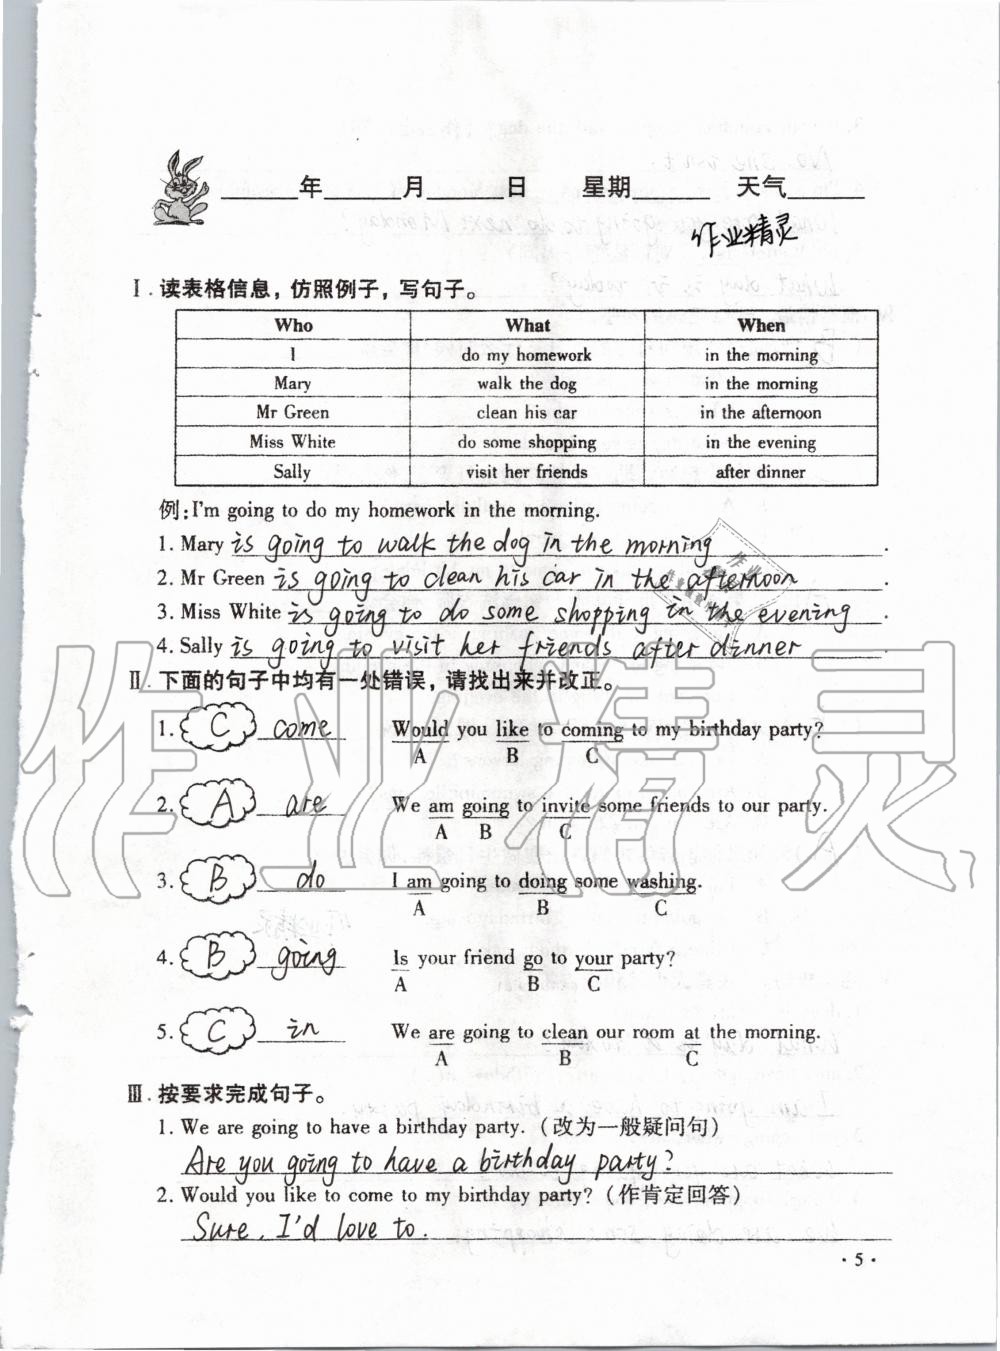 ____年____月____日 星期____ 天气____
作业精灵
Ⅰ.读表格信息，仿照例子，写句子。
Who What When
I do my homework in the morning
Mary walk the dog in the morning
Mr Green clean his car in the afternoon
Miss White do some shopping in the evening
Sally visit her friends after dinner
例:I'm going to do my homework in the morning.
1. Mary is going to walk the dog in the morning.
2. Mr Green is going to clean his car in the afternoon.
3. Miss White is going to do some shopping in the evening.
4. Sally is going to visit her friends after dinner.
Ⅱ.下面的句子中均有一处错误,请找出来并改正。
1. C come Would you like to coming to my birthday party?
A B C
2. A are We am going to invite some friends to our party.
A B C
3. B do I am going to doing some washing.
A B C
4. B going Is your friend go to your party?
A B C
5. C in We are going to clean our room at the morning.
A B C
Ⅲ.按要求完成句子。
1. We are going to have a birthday party.(改为一般疑问句)
Are you going to have a birthday party?
2. Would you like to come to my birthday party?(作肯定回答)
Sure, I'd love to.
·5·
作业精灵